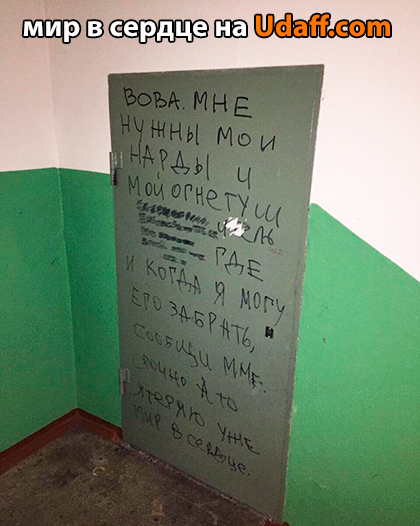 мир в сердце на Udaff.com
ВОВА. МНЕ
НУЖНЫ МОИ
НАРДЫ И
МОЙ ОГНЕТУШ
ИТЕЛЬ
ГДЕ
И КОГДА Я МОГУ
ЕГО ЗАБРАТЬ,
СООБЩИ МНЕ.
СРОЧНО А ТО
ПТЕРЯЮ УЖЕ
МИР В СЕРДЦЕ.